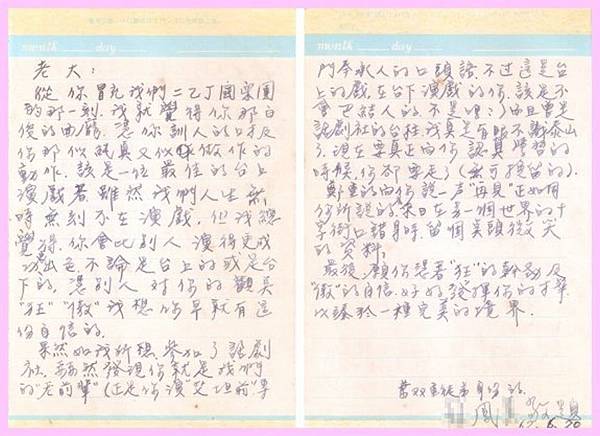 month day
老大：
從你冒充我們二乙丁國樂團
的那一刻，我就覺得你那白
俊的面龐，還你訓人的口才及
你那似認真又似做作的
動作，該是一位最佳的台上
演戲者，雖然我們人生無
時無刻不在演戲，但我總
覺得，你會比別人演得更成
功出色，不論是台上的或是台
下的，憑別人對你的觀具
"狂""傲"我想你早就有這
份自信的。
果然如我所想，參加了話劇
社，赫然發現你就是我們
的"老前輩"（正是你演"艾坦前"
month day
門奉承人的口頭語，不过這是台
上的戲，在台下演戲的你，該是不
會巴結人的，不是嗎？）而且曾是
話劇社的台柱，我真是有眼不識泰山
了。現在要真正向你認真學習的
時候，你卻要走了（無可挽留的），
鄭重的向你說一声"再見"正如同
你所說的，來日在另一個世界的十
字街口錯身時，留個笑頭微笑
的資料。
最後，願你憑著"狂"的幹勁及
"傲"的自信，好好發揮你的才華
以臻於一種完美的境界。
當双重徒弟身份的
鳳 敬題
6.20